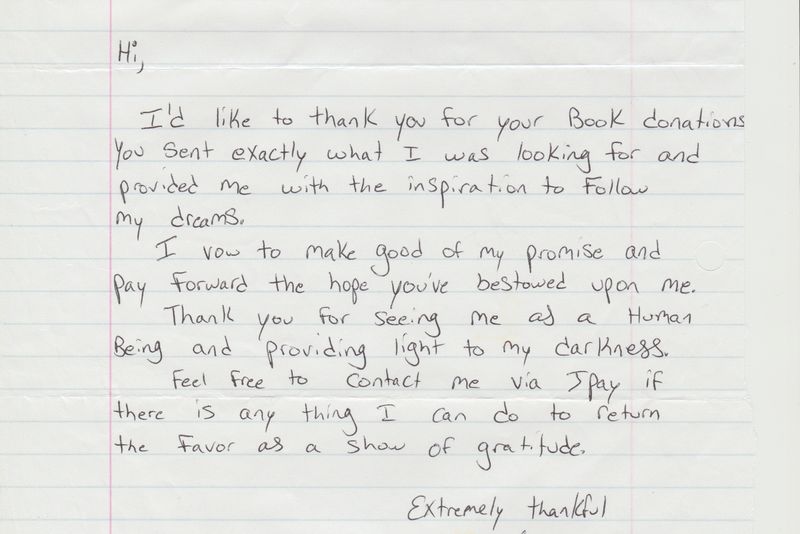 Hi,
I'd like to thank you for your Book donations
You sent exactly what I was looking for and
provided me with the inspiration to Follow
my dreams.
I vow to make good of my promise and
pay forward the hope you've bestowed upon me.
Thank you for seeing me as a Human
Being and providing light to my darkness.
Feel free to contact me via Jpay if
there is any thing I can do to return
the favor as a show of gratitude.
Extremely thankful